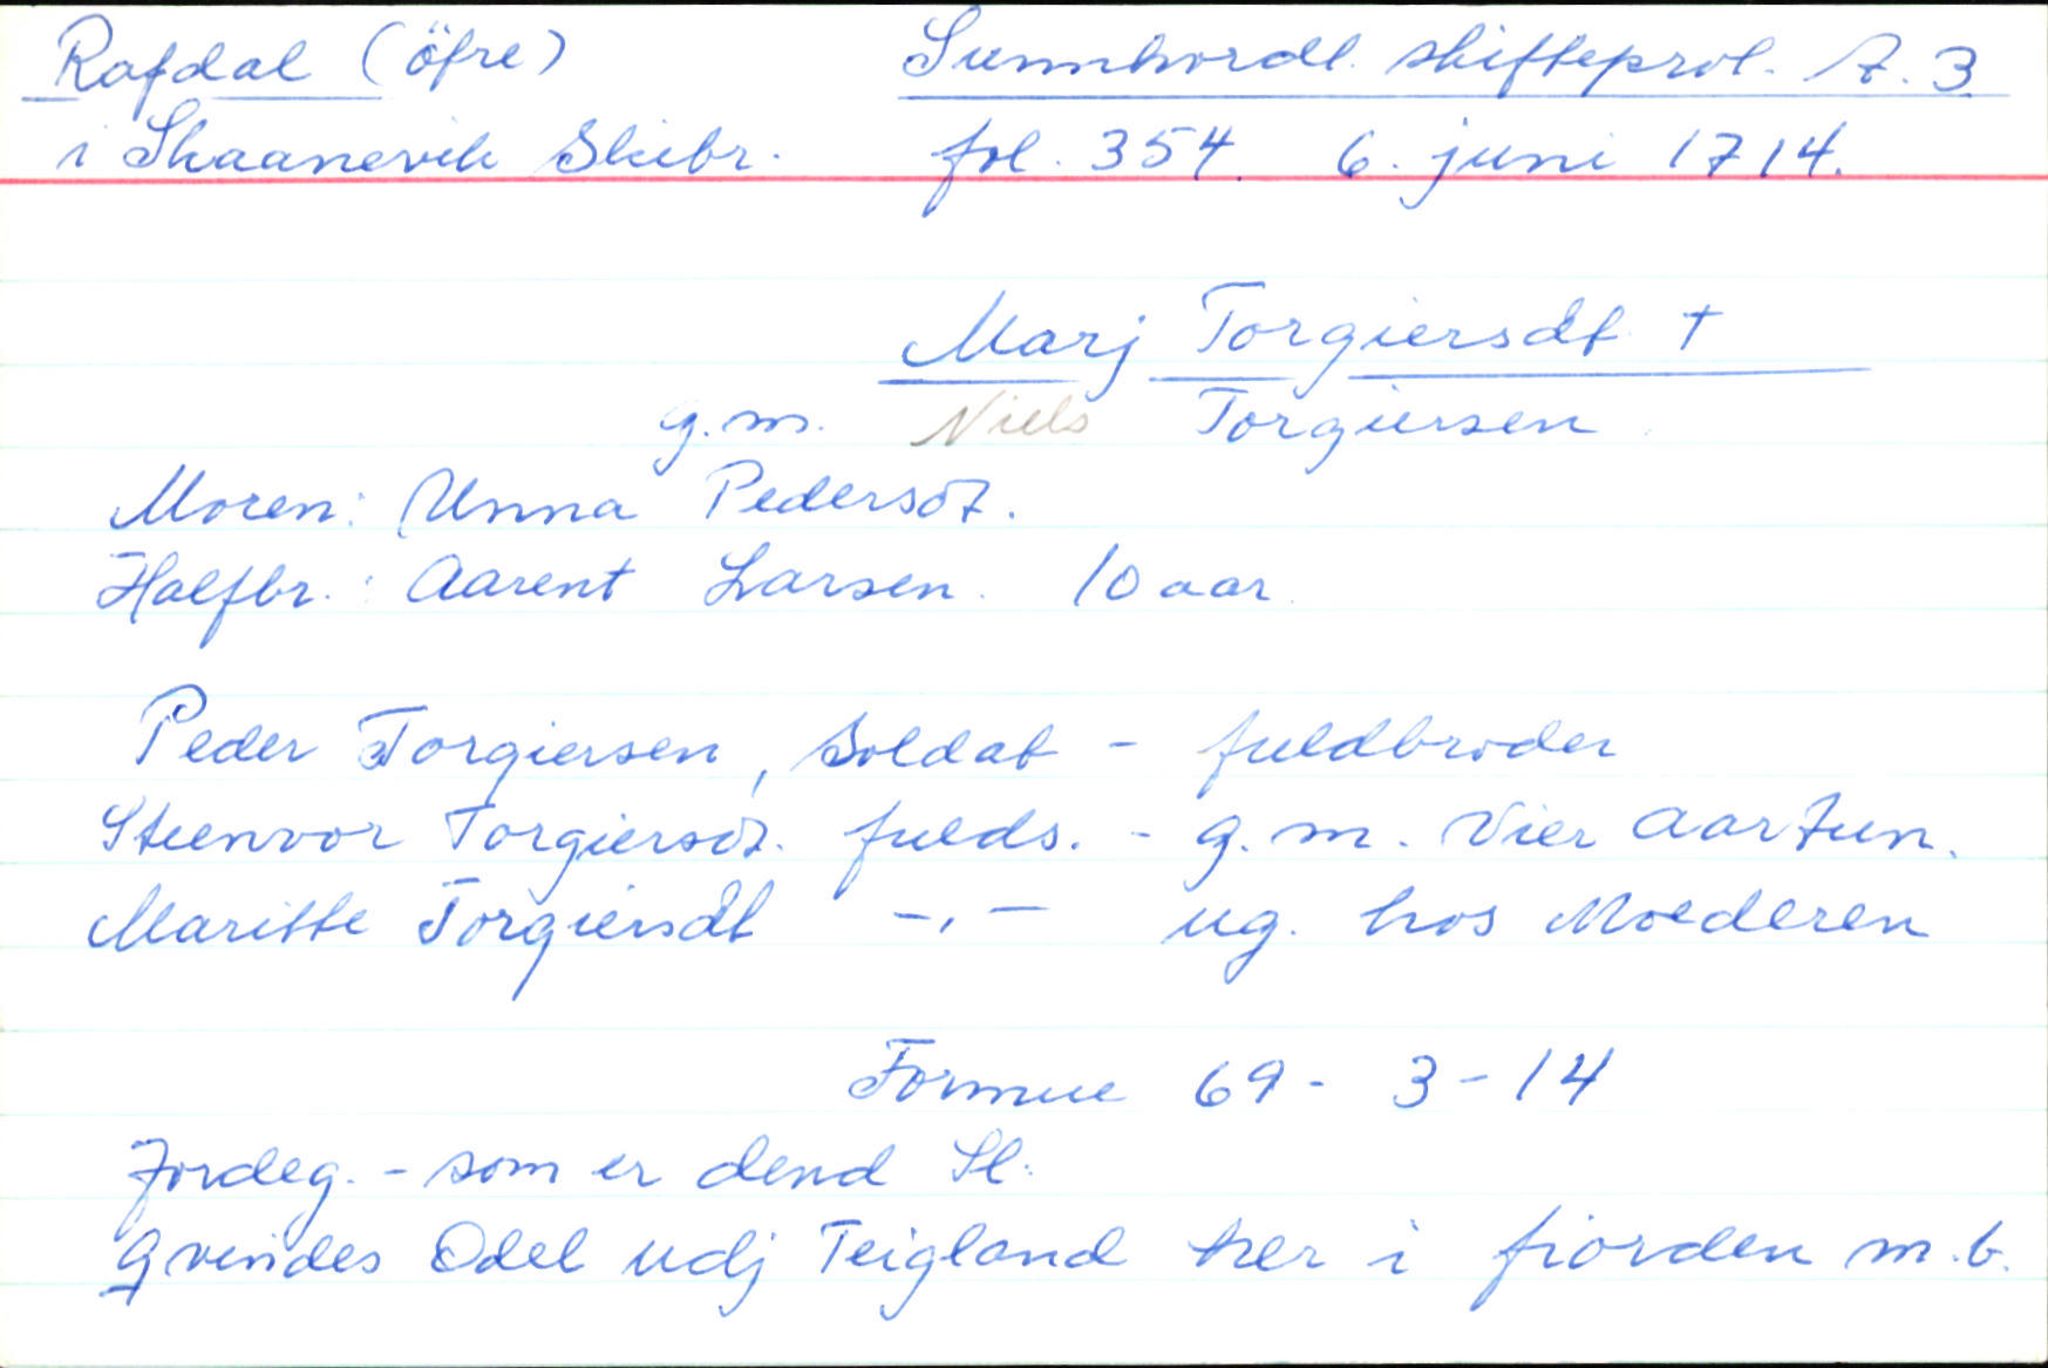 Rafdal (öfre) Sunnhordl. skifteprol. A. 3
i Skaanevik Skibr. fol. 354. 6. juni 1714.
Marj Torgiersdt. †
g.m. Niels Torgiersen
Moren: Unna Pedersdt.
Halfbr.: Aarent Larsen. 10 aar.
Peder Torgiersen, Soldat - fuldbroder
Steenvor Torgiersdt. fulds. - g.m. Vier Aartun.
Maritte Torgiersdt -.- ug. hos Moederen
Formue 69 - 3 - 14
Jordeg. - som er dend Sl:
Qvindes Odel udj Teigland her i fiorden m.b.